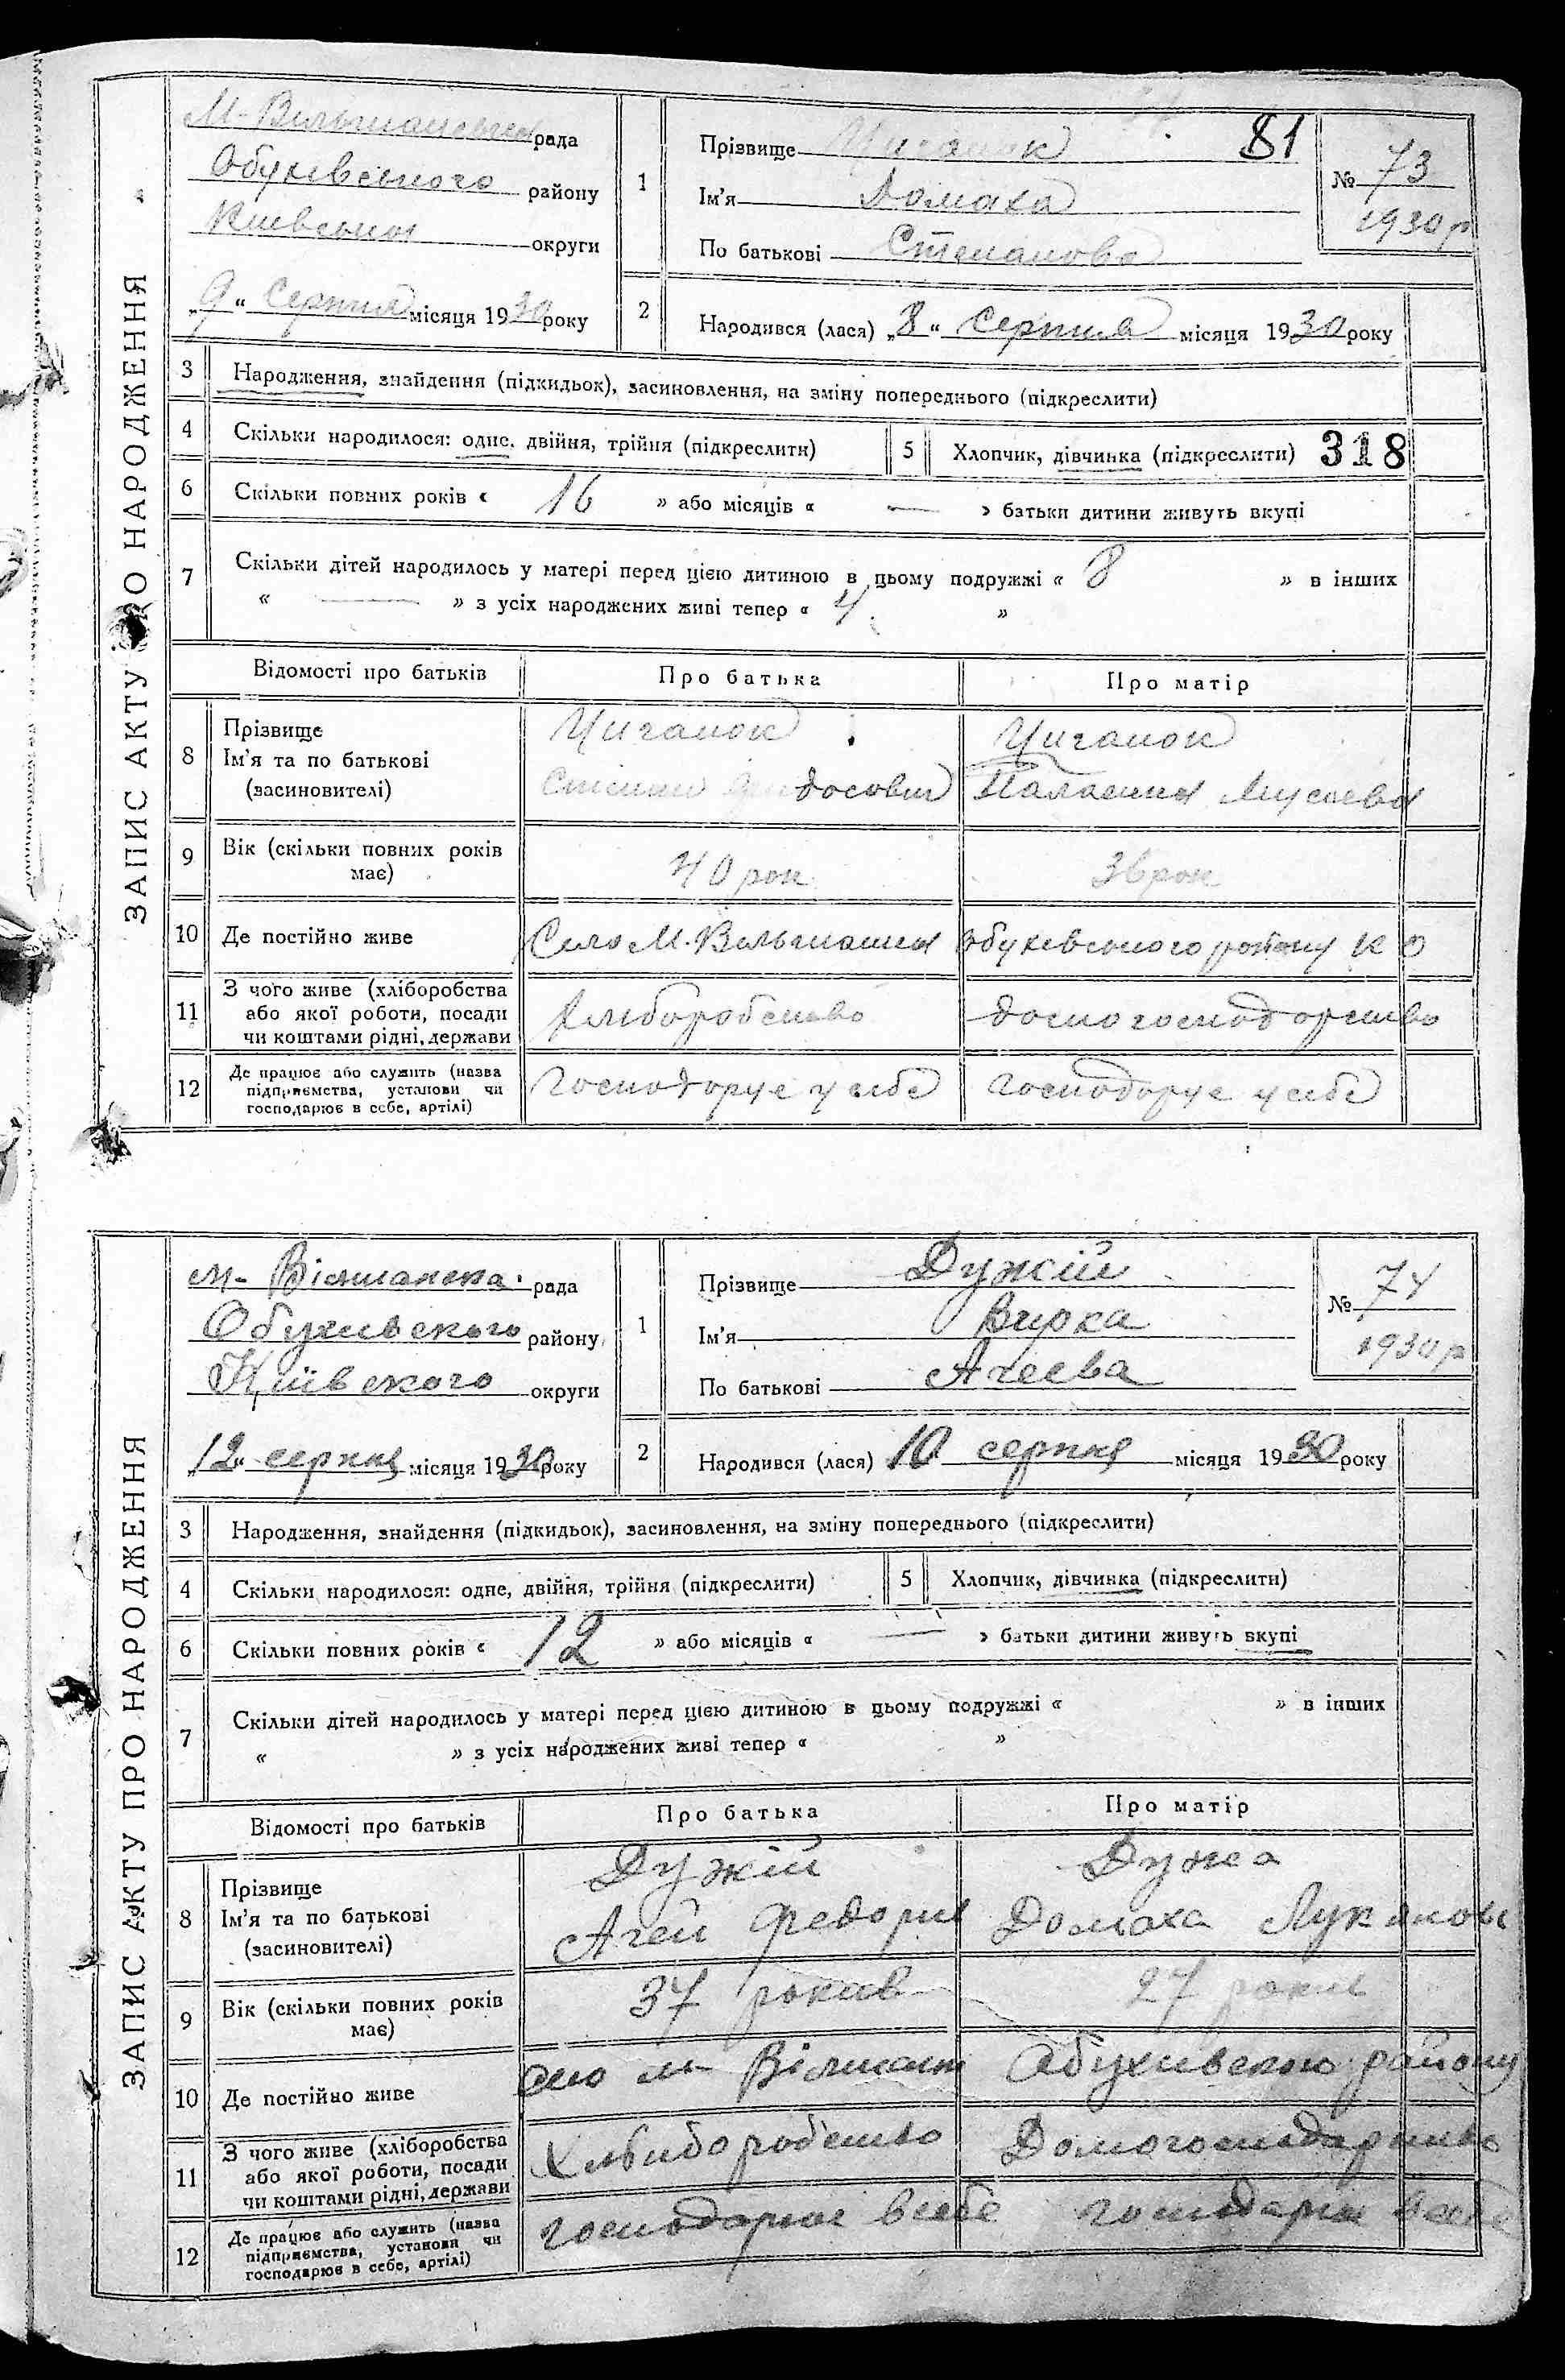 ЗАПИС АКТУ ПРО НАРОДЖЕННЯ
М-Вильшанська рада
Обухівського району
Київської округи
„9“ Серпня місяця 1930 року
1
Прізвище Циганок 81
Ім'я Домаха
По батькові Степанова
№ 73
1930 р
2
Народився (лася) „8“ Серпня місяця 1930 року
3 Народження, знайдення (підкидьок), засиновлення, на зміну попереднього (підкреслити)
4 Скільки народилося: одне, двійня, трійня (підкреслити) 5 Хлопчик, дівчинка (підкреслити) 318
6 Скільки повних років « 16 » або місяців « — » батьки дитини живуть вкупі
7 Скільки дітей народилось у матері перед цією дитиною в цьому подружжі « 8 » в інших
« — » з усіх народжених живі тепер « 4 »
Відомості про батьків Про батька Про матір
8 Прізвище Ім'я та по батькові (засиновителі)
Циганок Циганок
Степан досович Палажка Мусієва
9 Вік (скільки повних років має) 40 рок 36 рок
10 Де постійно живе Село М. Вильшанка Обухівського району К О
11 З чого живе (хліборобства або якої роботи, посади чи коштами рідні, держави Хліборобство домогосподорство
12 Де працює або служить (назва підприємства, установи чи господарює в себе, артілі) Господорує у себе господорує у себе
ЗАПИС АКТУ ПРО НАРОДЖЕННЯ
м- Вілшанска рада
Обухивского району
Київского округи
„12“ серпня місяця 1930 року
1
Прізвище Дужій
Ім'я Вирка
По батькові Агеєва
№ 74
1930 р
2
Народився (лася) 10 серпня місяця 1930 року
3 Народження, знайдення (підкидьок), засиновлення, на зміну попереднього (підкреслити)
4 Скільки народилося: одне, двійня, трійня (підкреслити) 5 Хлопчик, дівчинка (підкреслити)
6 Скільки повних років « 12 » або місяців « — » батьки дитини живуть вкупі
7 Скільки дітей народилось у матері перед цією дитиною в цьому подружжі « » в інших
« » з усіх народжених живі тепер « »
Відомості про батьків Про батька Про матір
8 Прізвище Ім'я та по батькові (засиновителі)
Дужій Дужа
Агей Федорив Домаха Лукянов
9 Вік (скільки повних років має) 37 рокив 27 рокив
10 Де постійно живе м- Вілшанк Обухивского району
11 З чого живе (хліборобства або якої роботи, посади чи коштами рідні, держави Хлібиборобство Домогосподарство
12 Де працює або служить (назва підприємства, установи чи господарює в себе, артілі) господарює в себе господарює в себе